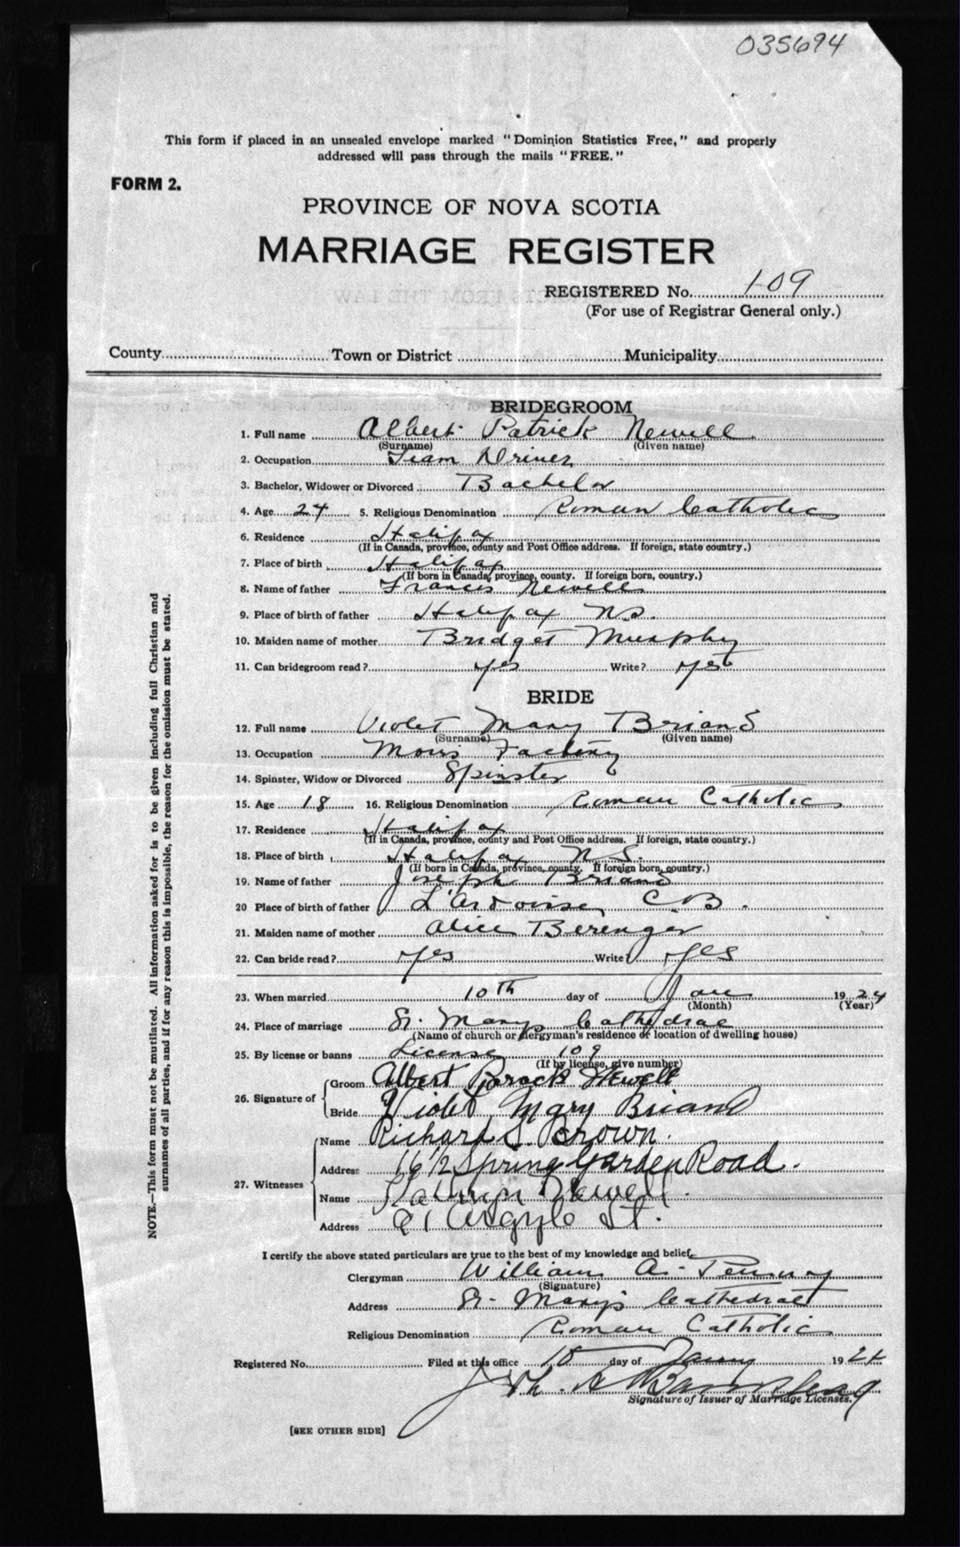 035694
This form if placed in an unsealed envelope marked "Dominion Statistics Free," and properly
addressed will pass through the mails "FREE."
FORM 2.
PROVINCE OF NOVA SCOTIA
MARRIAGE REGISTER
REGISTERED No. 109
(For use of Registrar General only.)
County Town or District Municipality
BRIDEGROOM
1. Full name Albert Patrick Newell
(Surname) (Given name)
2. Occupation Team Driver
3. Bachelor, Widower or Divorced Bachelor
4. Age 24 5. Religious Denomination Roman Catholic
6. Residence Halifax
(If in Canada, province, county and Post Office address. If foreign, state country.)
7. Place of birth Halifax
(If born in Canada, province, county. If foreign born, country.)
8. Name of father Francis Newell
9. Place of birth of father Halifax NS.
10. Maiden name of mother Bridget Murphy
11. Can bridegroom read? yes Write? yes
BRIDE
12. Full name Violet Mary Briand
(Surname) (Given name)
13. Occupation Moirs Factory
14. Spinster, Widow or Divorced Spinster
15. Age 18 16. Religious Denomination Roman Catholic
17. Residence Halifax
(If in Canada, province, county and Post Office address. If foreign, state country.)
18. Place of birth Halifax N.S.
(If born in Canada, province, county. If foreign born, country.)
19. Name of father Joseph Briand
20 Place of birth of father L'Ardoise C.B.
21. Maiden name of mother Alice Berenger
22. Can bride read? yes Write? yes
23. When married 10th day of Jan 1924
(Month) (Year)
24. Place of marriage St. Mary's Cathedral
(Name of church or clergyman's residence or location of dwelling house)
25. By license or banns License 109
(If by license, give number)
26. Signature of Groom Albert Newell
Bride Violet Mary Briand
27. Witnesses Name Richard S. Brown.
Address 16 1/2 Spring Garden Road.
Name Kathryn Newell.
Address 91 Argyle St.
I certify the above stated particulars are true to the best of my knowledge and belief.
Clergyman William A.
(Signature)
Address St. Mary's Cathedral
Religious Denomination Roman Catholic
Registered No. Filed at this office 10 day of 1924
Signature of Issuer of Marriage Licenses.
[SEE OTHER SIDE]
NOTE.—This form must not be mutilated. All information asked for is to be given including full Christian and
surnames of all parties, and if for any reason this is impossible, the reason for the omission must be stated.